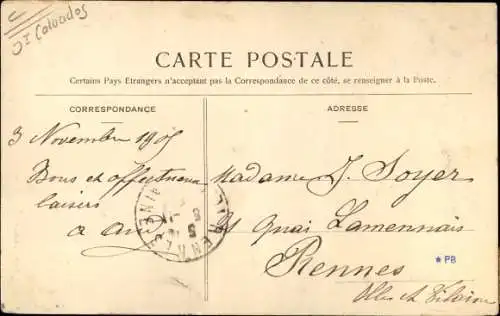 DI Calvados
CARTE POSTALE
Certains Pays Etrangers n'acceptant pas la Correspondance de ce côté, se renseigner à la Poste.
CORRESPONDANCE
ADRESSE
3 Novembre 1905
Bons et affectueux
baisers
Madame J. Soyer
Quai Lamennais
Rennes
Ille et Vilaine
* PB